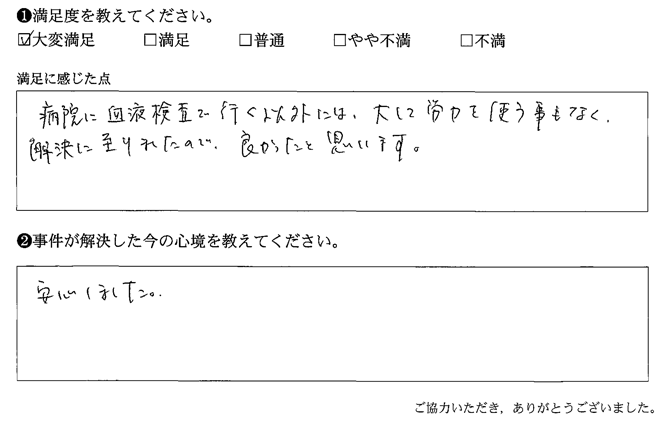 ❶満足度を教えてください。
☑大変満足 □満足 □普通 □やや不満 □不満
満足に感じた点
病院に血液検査で行く以外には、大して労力を使う事もなく、
解決に至れたので、良かったと思います。
❷事件が解決した今の心境を教えてください。
安心しました。
ご協力いただき，ありがとうございました。